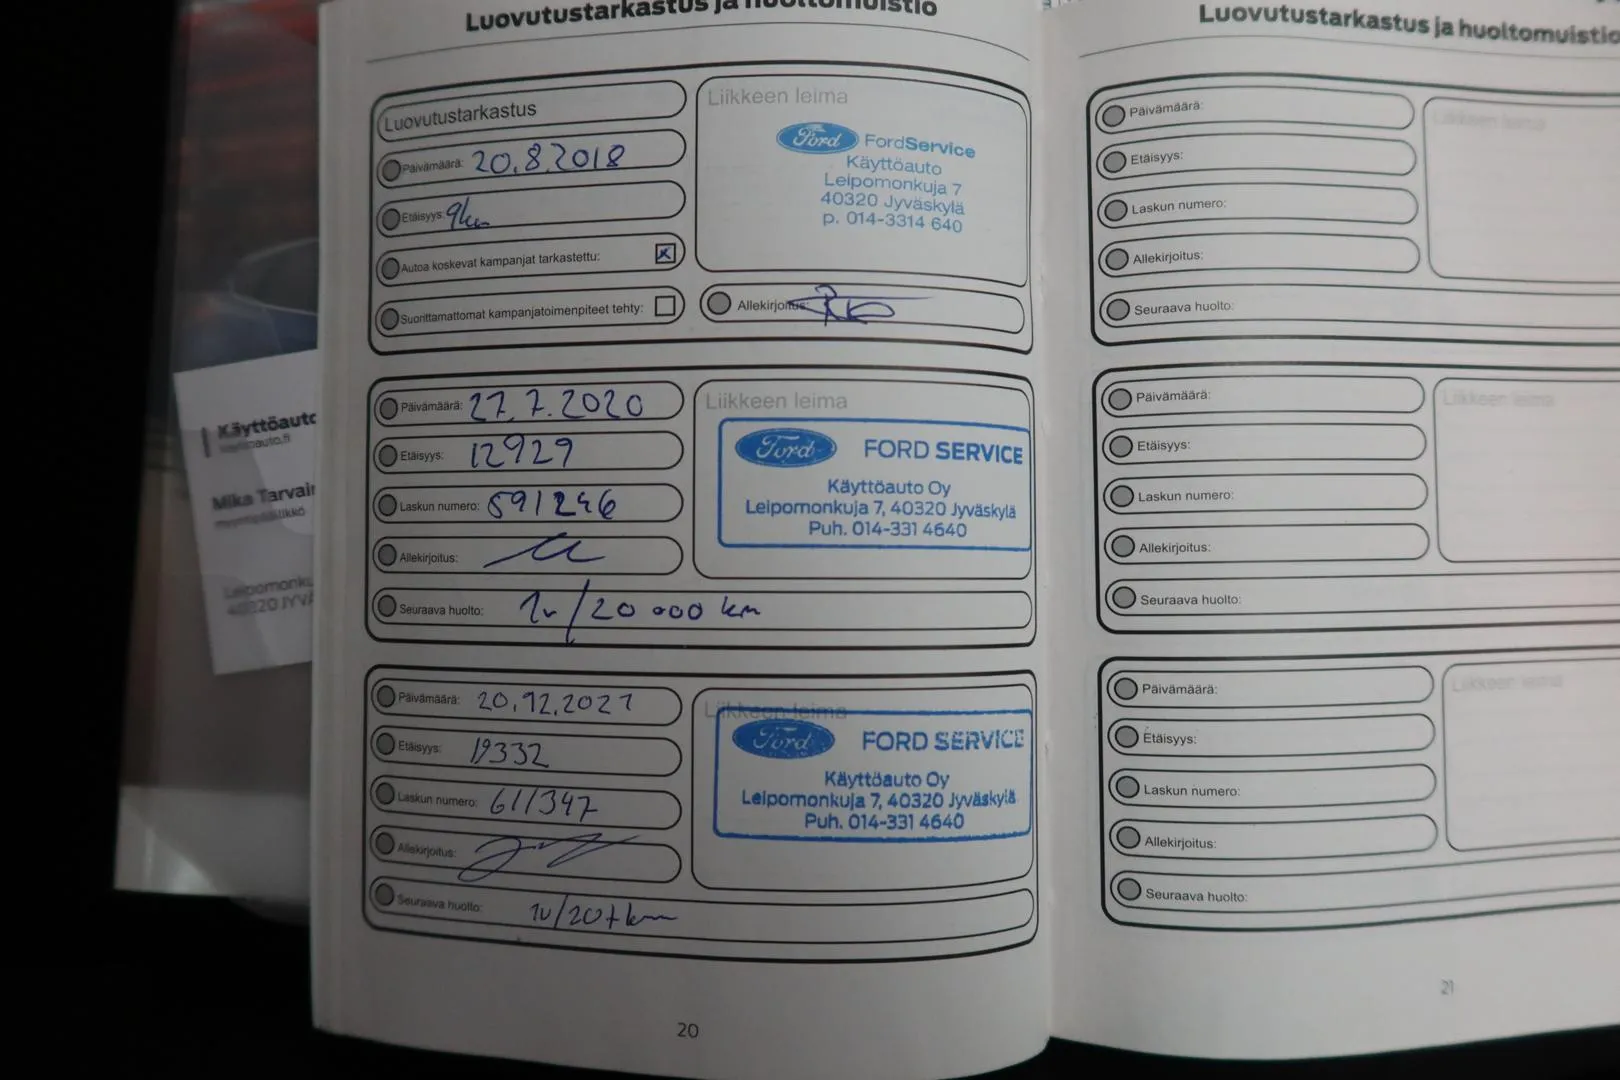 Luovutustarkastus ja huoltomuistio
Luovutustarkastus
Päivämäärä: 20.8.2018
Etäisyys: 9km
Autoa koskevat kampanjat tarkastettu:
Suorittamattomat kampanjatoimenpiteet tehty:
Liikkeen leima
Ford FordService
Käyttöauto
Leipomonkuja 7
40320 Jyväskylä
p. 014-3314 640
Allekirjoitus:
Päivämäärä: 27.7.2020
Etäisyys: 12929
Laskun numero: 591246
Allekirjoitus:
Seuraava huolto: 1v/20 000 km
Liikkeen leima
Ford FORD SERVICE
Käyttöauto Oy
Leipomonkuja 7, 40320 Jyväskylä
Puh. 014-331 4640
Päivämäärä: 20.12.2021
Etäisyys: 19332
Laskun numero: 611347
Allekirjoitus:
Seuraava huolto: 1v/20tkm
Liikkeen leima
Ford FORD SERVICE
Käyttöauto Oy
Leipomonkuja 7, 40320 Jyväskylä
Puh. 014-331 4640
20
Luovutustarkastus ja huoltomuistio
Päivämäärä:
Etäisyys:
Laskun numero:
Allekirjoitus:
Seuraava huolto:
Liikkeen leima
Päivämäärä:
Etäisyys:
Laskun numero:
Allekirjoitus:
Seuraava huolto:
Liikkeen leima
Päivämäärä:
Etäisyys:
Laskun numero:
Allekirjoitus:
Seuraava huolto:
Liikkeen leima
21
Käyttöauto
Mika Tarvai
Leipomonku
40320 JYVÄ